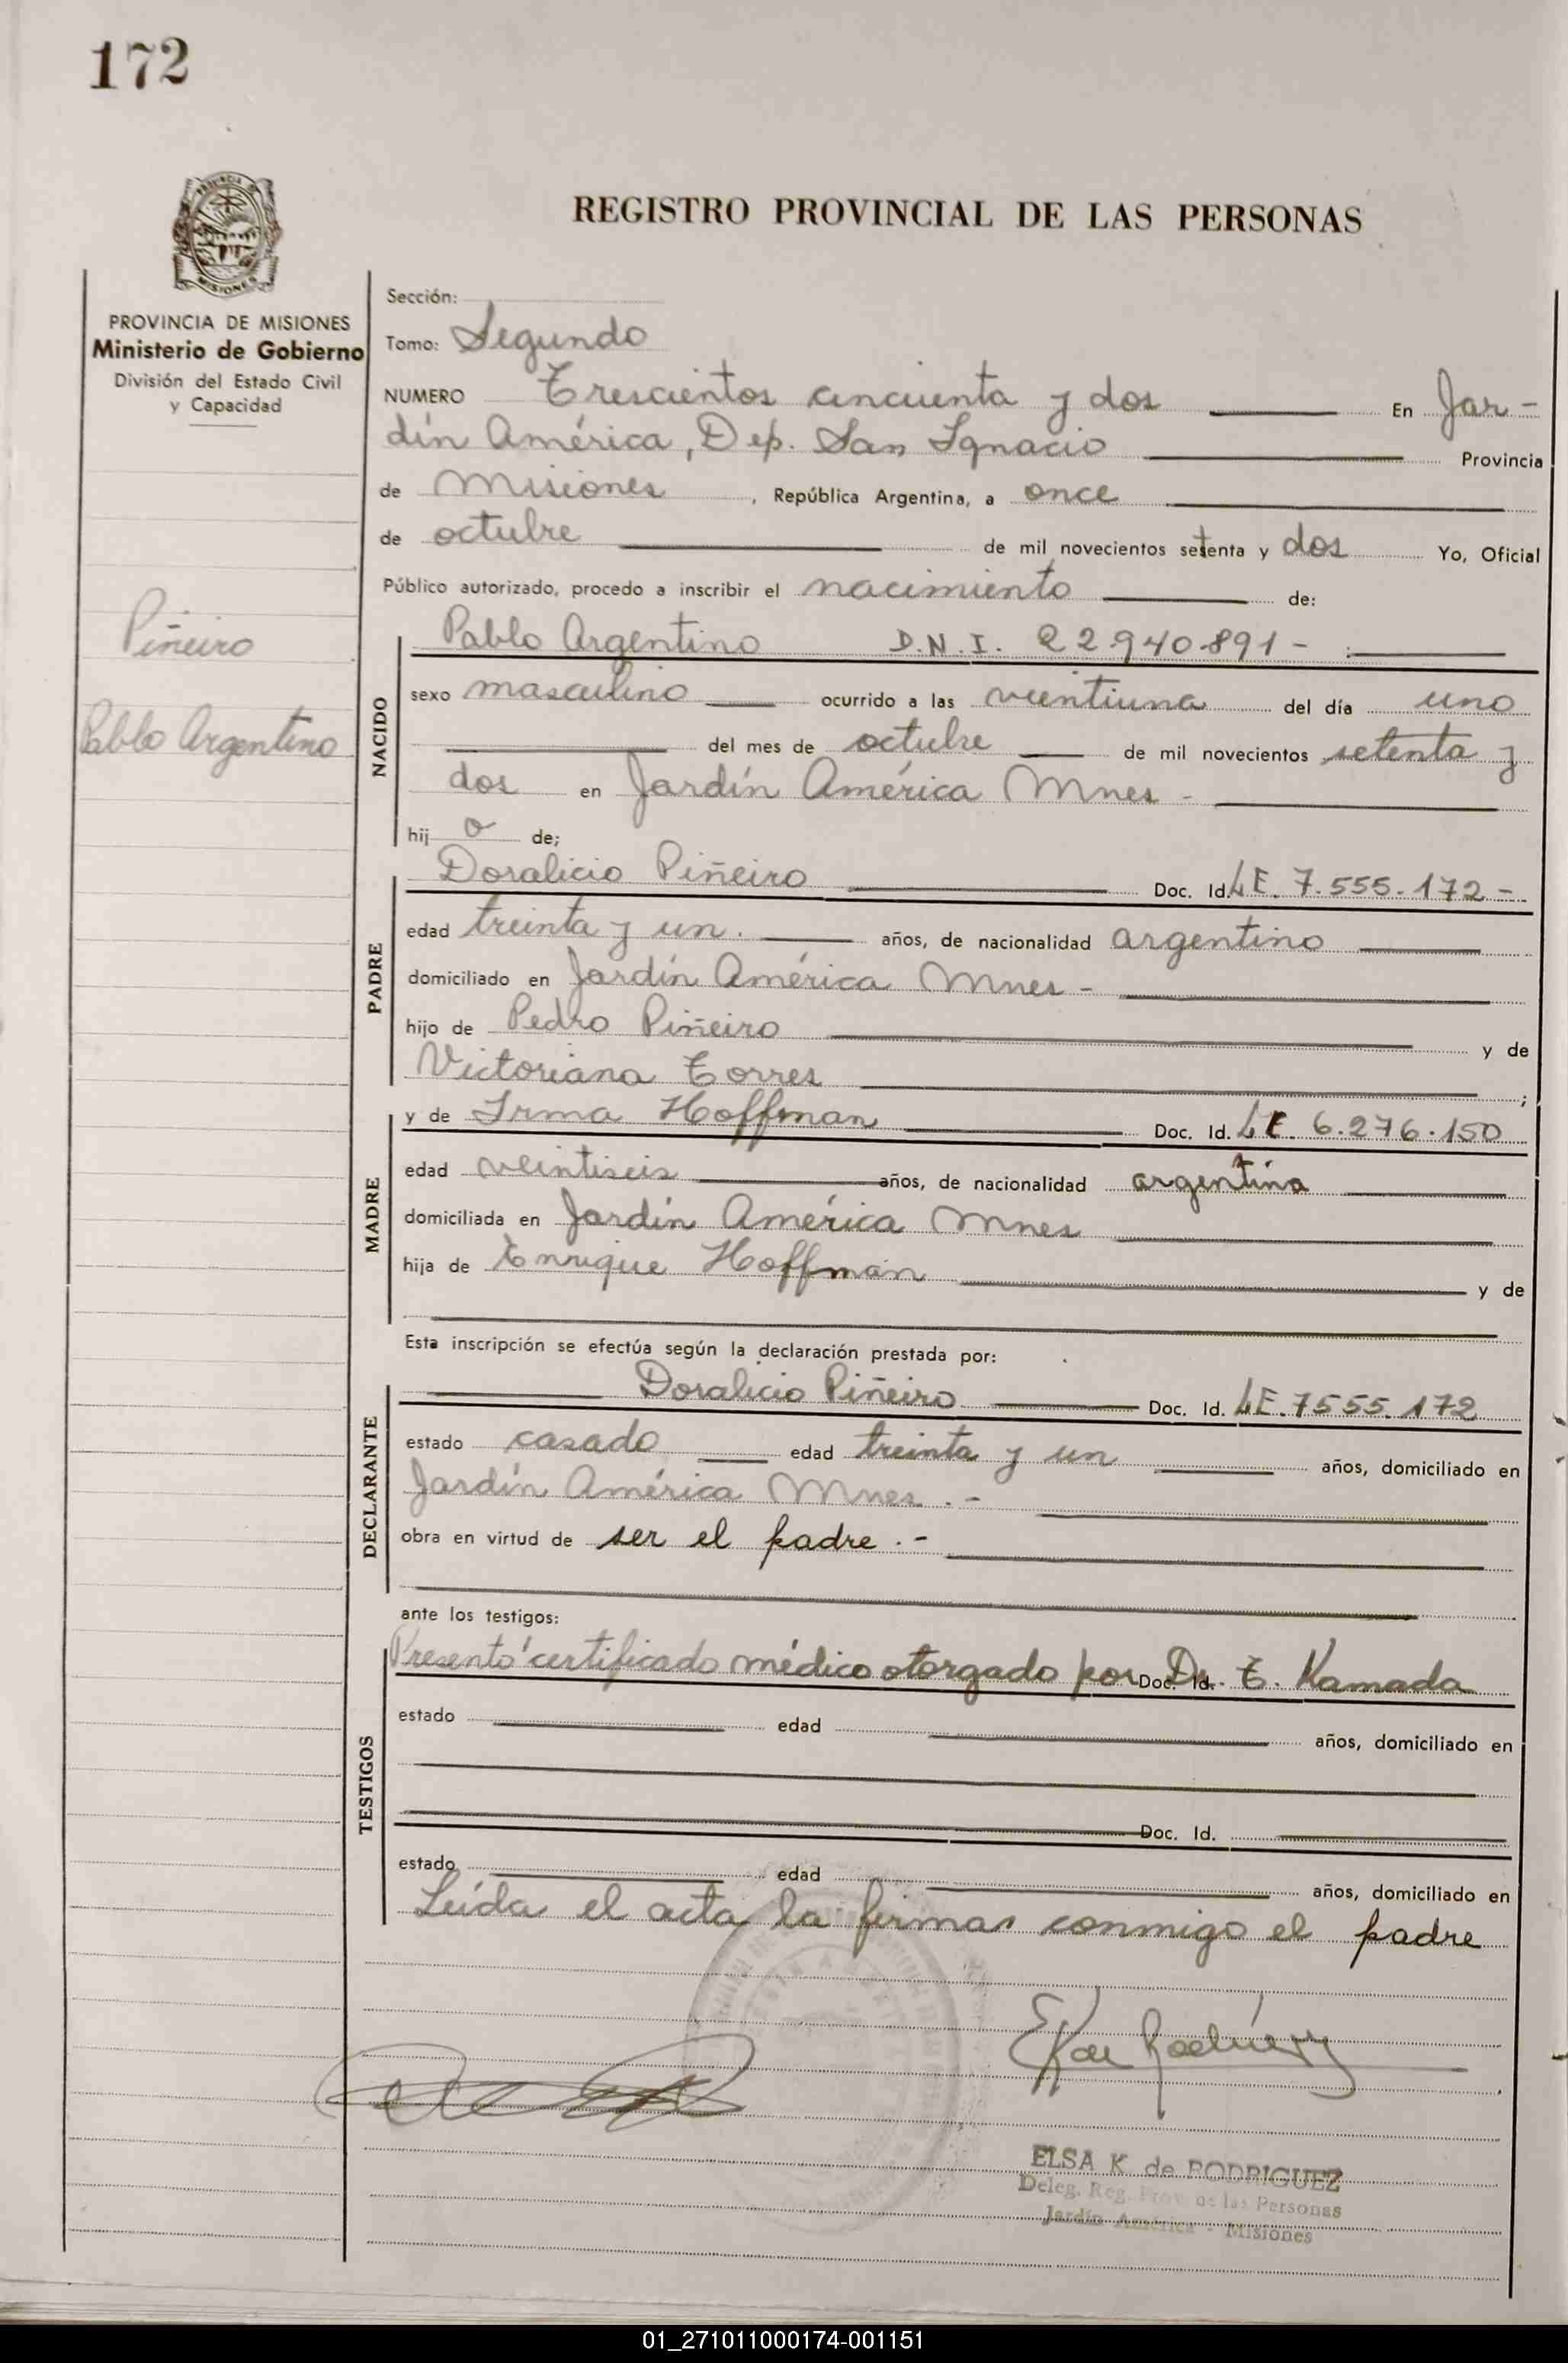 172
REGISTRO PROVINCIAL DE LAS PERSONAS
PROVINCIA DE MISIONES
Ministerio de Gobierno
División del Estado Civil
y Capacidad
Piñeiro
Pablo Argentino
Sección:
Tomo: Segundo
NUMERO Trescientos cincuenta y dos En Jar-
dín América, Dep. San Ignacio Provincia
de Misiones, República Argentina, a once
de octubre de mil novecientos setenta y dos Yo, Oficial
Público autorizado, procedo a inscribir el nacimiento de:
NACIDO
Pablo Argentino D.N.I. 22.940.891-
sexo masculino ocurrido a las veintiuna del día uno
del mes de octubre de mil novecientos setenta y
dos en Jardín América Mnes -
hij o de;
PADRE
Doralicio Piñeiro Doc. Id. LE. 7.555.172 -
edad treinta y un. años, de nacionalidad argentino
domiciliado en Jardín América Mnes -
hijo de Pedro Piñeiro y de
Victoriana Torres ;
MADRE
y de Irma Hoffman Doc. Id. LE. 6.276.150
edad veintiseis años, de nacionalidad argentina
domiciliada en Jardín América Mnes
hija de Enrique Hoffman y de
Esta inscripción se efectúa según la declaración prestada por:
DECLARANTE
Doralicio Piñeiro Doc. Id. LE. 7555.172
estado casado edad treinta y un años, domiciliado en
Jardín América Mnes . -
obra en virtud de ser el padre . -
ante los testigos:
TESTIGOS
Presentó certificado médico otorgado por Doc. Id. Dr. T. Kamada
estado edad años, domiciliado en
Doc. Id.
estado edad años, domiciliado en
Leída el acta la firman conmigo el padre
ELSA K. de RODRIGUEZ
Deleg. Reg. Prov. de las Personas
Jardín América - Misiones
01_271011000174-001151